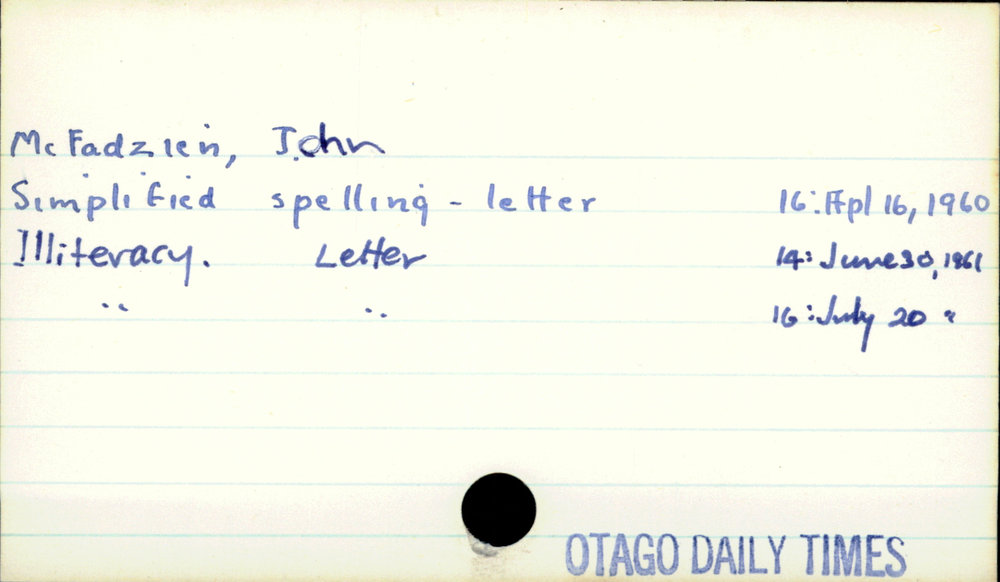 McFadzien, John
Simplified spelling - letter 16: Apl 16, 1960
Illiteracy. Letter 14: June 30, 1961
" " 16: July 20 "
OTAGO DAILY TIMES